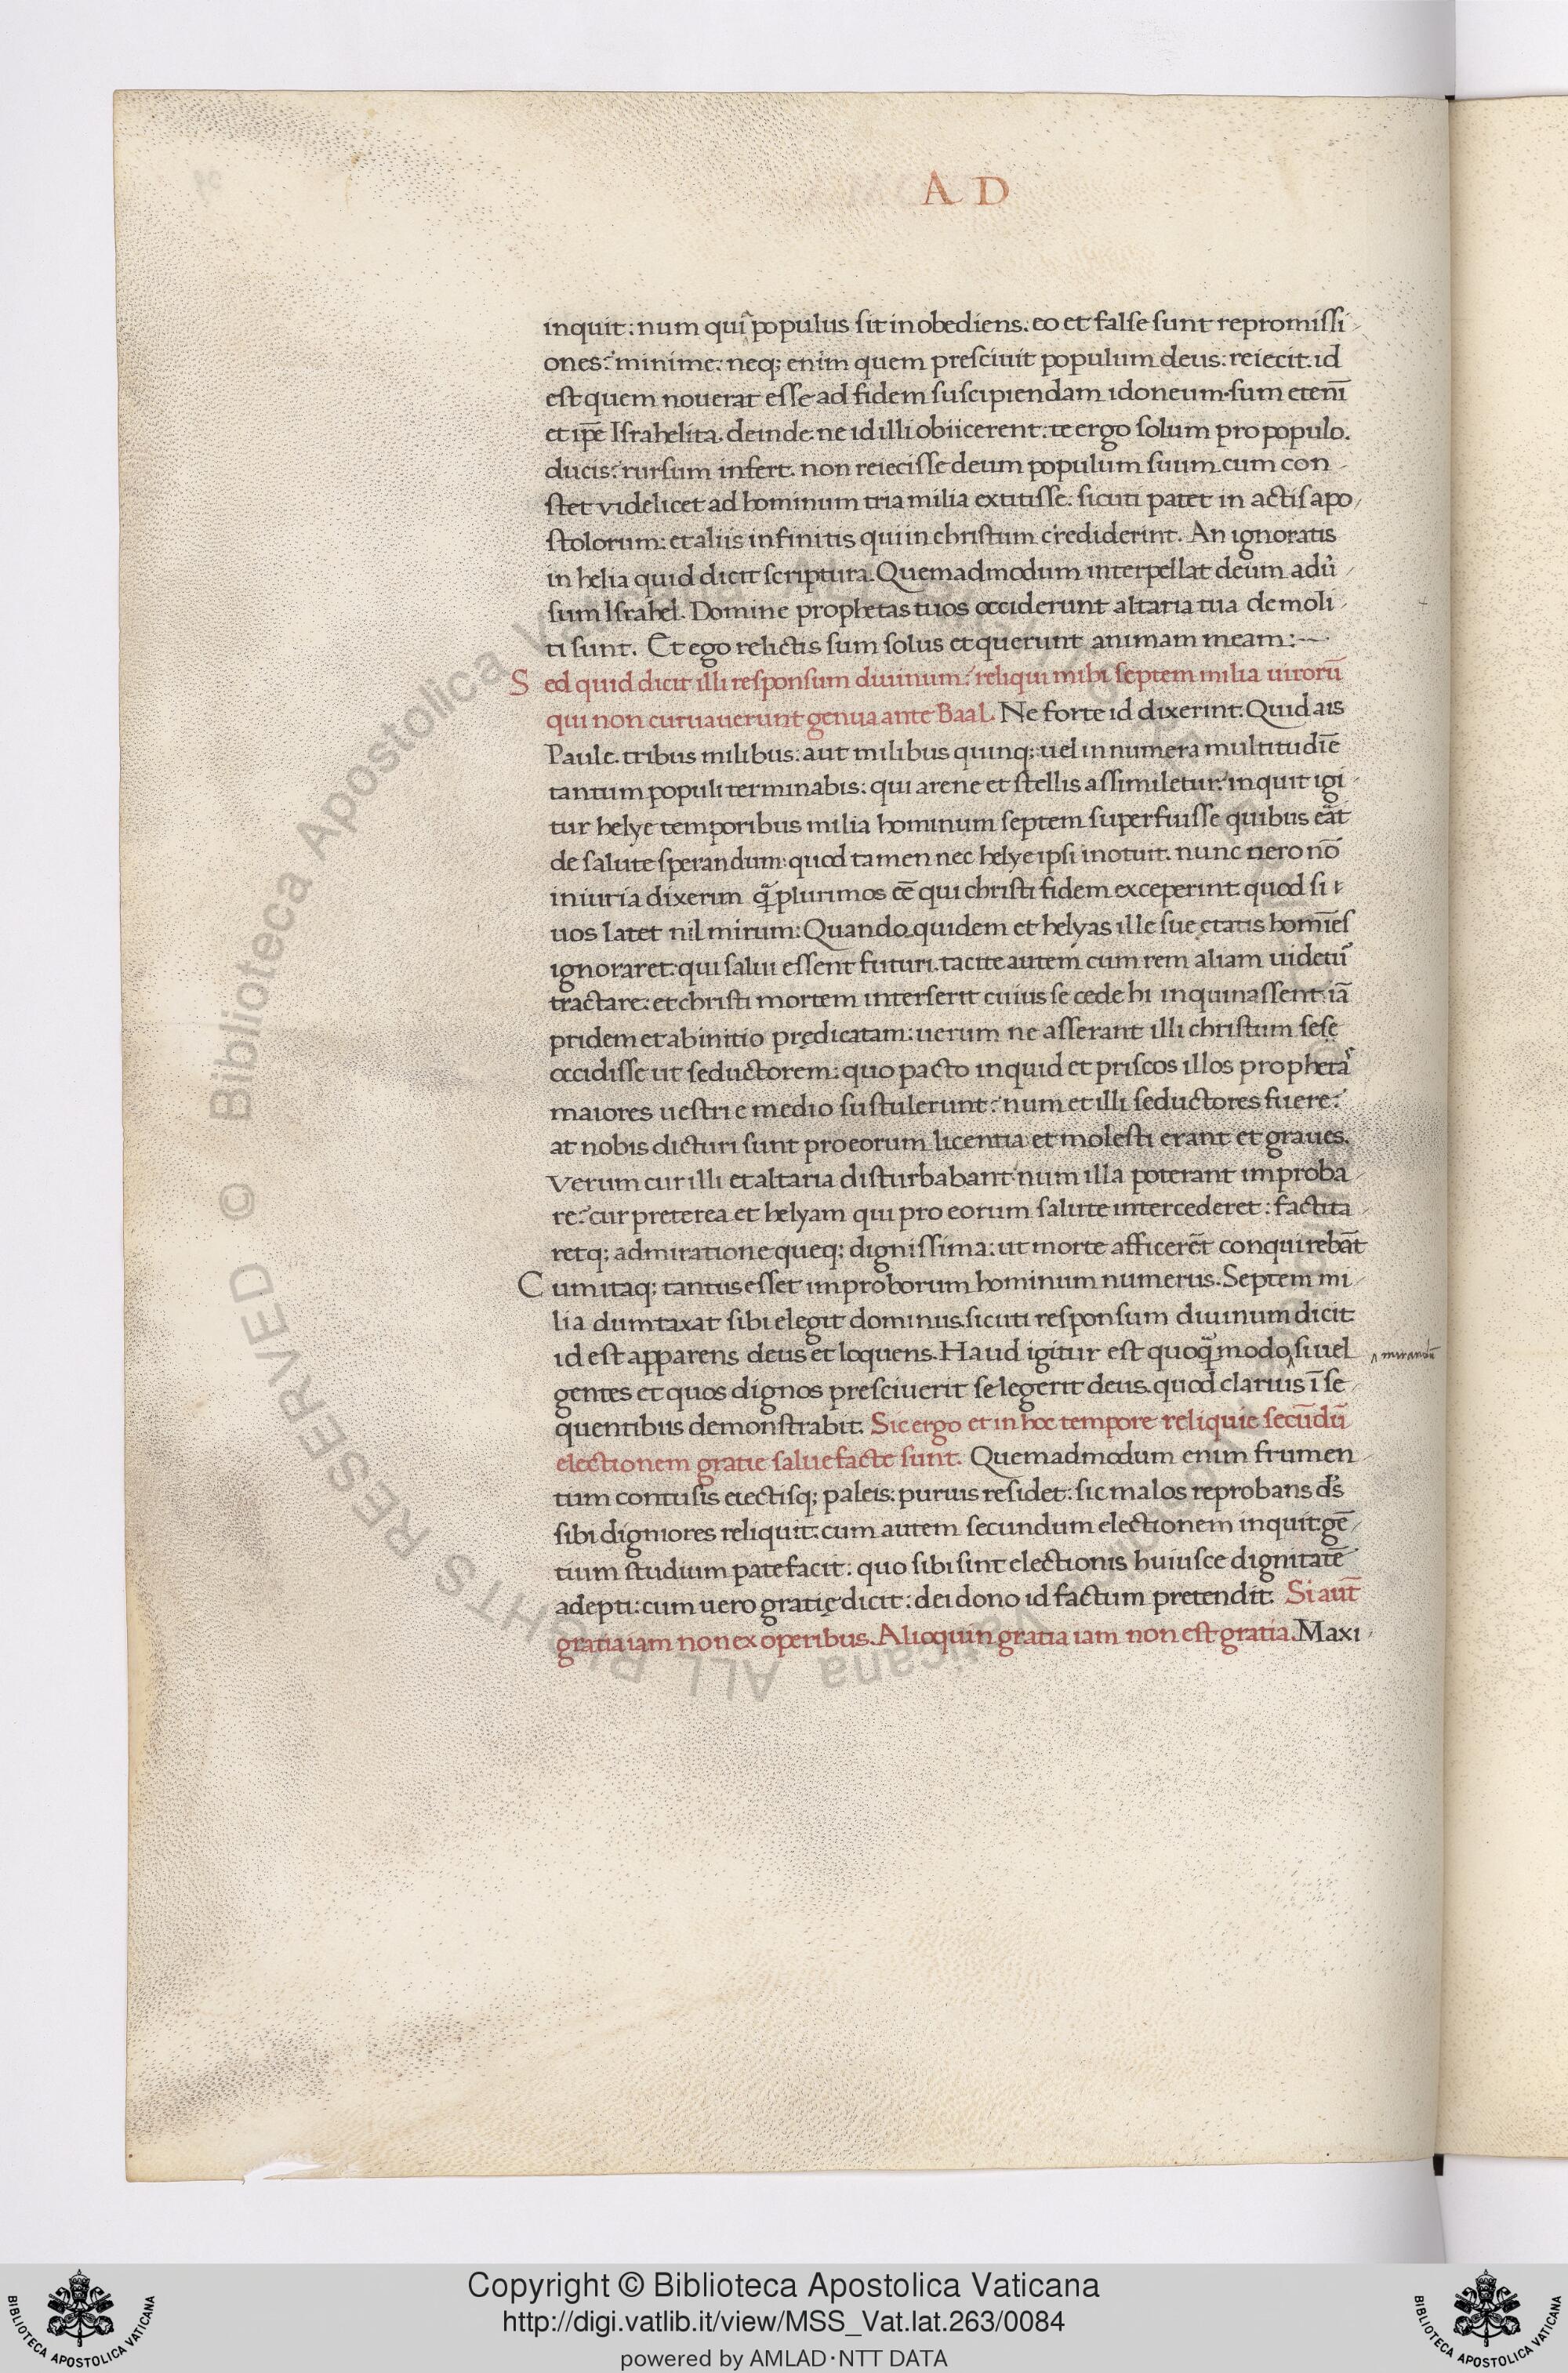 A D
inquit: num qui populus sit inobediens. eo et false sunt repromissi
ones? minime. neq; enim quem presciuit populum deus: reiecit. id
est quem nouerat esse ad fidem suscipiendam idoneum. sum etenī
et ip̄e Israhelita. deinde ne id illi obiicerent. te ergo solum pro populo.
ducis? rursum infert. non reiecisse deum populum suum cum con
stet videlicet ad hominum tria milia extitisse: sicuti patet in actis apo
stolorum: et aliis infinitis qui in christum crediderint. An ignoratis
in helia quid dicit scriptura. Quemadmodum interpellat deum adu᷒
sum Israhel. Domine prophetas tuos occiderunt altaria tua demoli
ti sunt. Et ego relictis sum solus et querunt animam meam:
Sed quid dicit illi responsum diuinum? reliqui mihi septem milia uirorū
qui non curuauerunt genua ante Baal. Ne forte id dixerint. Quid ais
Paule. tribus milibus: aut milibus quinq; uel innumera multitudīe
tantum populi terminabis: qui arene et stellis assimiletur? inquit igi
tur helye temporibus milia hominum septem superfuisse quibus eāt
de salute sperandum: quod tamen nec helye ipsi inotuit. nunc uero nō
iniuria dixerim q̄plurimos eē qui christi fidem exceperint. quod si
uos latet nil mirum: Quando quidem et helyas ille sue etatis homīes
ignoraret: qui salui essent futuri. tacite autem cum rem aliam uidetu᷒
tractare: et christi mortem interserit cuius se cede hi inquinassent iā
pridem et ab initio prędicatam: uerum ne asserant illi christum sese
occidisse ut seductorem: quo pacto inquid et priscos illos prophetas
maiores uestri e medio sustulerunt? num et illi seductores fuere?
at nobis dicturi sunt pro eorum licentia et molesti erant et graues.
Verum cur illi et altaria disturbabant num illa poterant improba
re? cur preterea et helyam qui pro eorum salute intercederet: factita
retq; admiratione queq; dignissima: ut morte afficerēt conquirebāt
Cum itaq; tantus esset improborum hominum numerus. Septem mi
lia dumtaxat sibi elegit dominus. sicuti responsum diuinum dicit
id est apparens deus et loquens. Haud igitur est quoq̄modo si uel
mirandū
gentes et quos dignos presciuerit selegerit deus. quod clarius ī se
quentibus demonstrabit. Sic ergo et in hoc tempore reliquie secūdū
electionem gratie salue facte sunt. Quemadmodum enim frumen
tum contusis eiectisq; paleis: purius residet: sic malos reprobans ds̄
sibi digniores reliquit: cum autem secundum electionem inquit gē
tium studium patefacit: quo sibi sint electionis huiusce dignitatē
adepti: cum uero gratię dicit: dei dono id factum pretendit. Si aut̄
gratia iam non ex operibus. Alioquin gratia iam non est gratia. Maxi
© Biblioteca Apostolica Vaticana ALL RIGHTS RESERVED
Copyright © Biblioteca Apostolica Vaticana
http://digi.vatlib.it/view/MSS_Vat.lat.263/0084
powered by AMLAD·NTT DATA
BIBLIOTECA APOSTOLICA VATICANA
BIBLIOTECA APOSTOLICA VATICANA